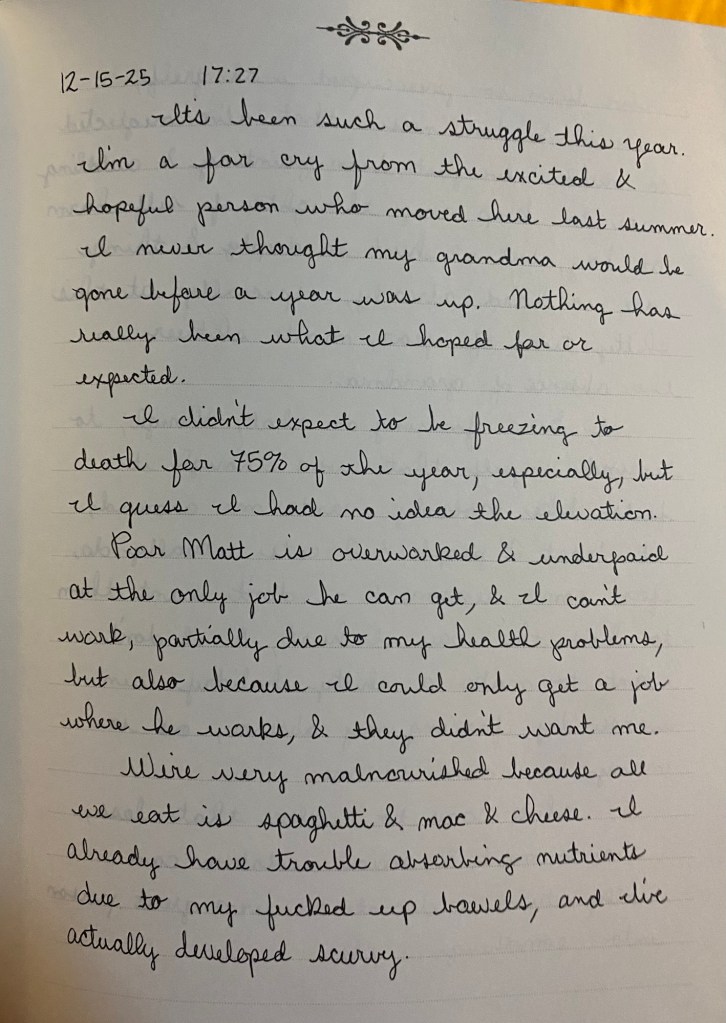 12-15-25 17:27
It's been such a struggle this year.
I'm a far cry from the excited &
hopeful person who moved here last summer.
I never thought my grandma would be
gone before a year was up. Nothing has
really been what I hoped for or
expected.
I didn't expect to be freezing to
death for 75% of the year, especially, but
I guess I had no idea the elevation.
Poor Matt is overworked & underpaid
at the only job he can get, & I can't
work, partially due to my health problems,
but also because I could only get a job
where he works, & they didn't want me.
We're very malnourished because all
we eat is spaghetti & mac & cheese. I
already have trouble absorbing nutrients
due to my fucked up bowels, and I've
actually developed scurvy.